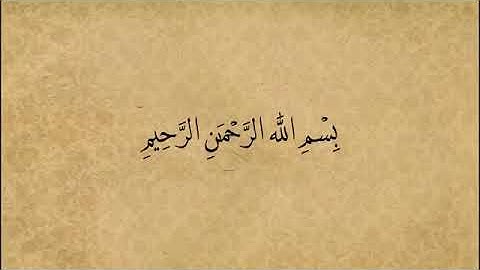 بِسْمِ اللّٰهِ الرَّحْمَنِ الرَّحِيمِ